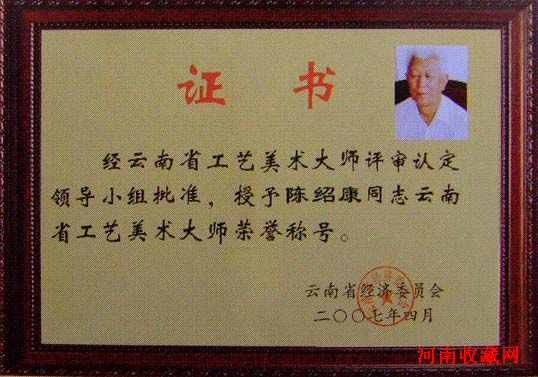 证 书
经云南省工艺美术大师评审认定
领导小组批准，授予陈绍康同志云南
省工艺美术大师荣誉称号。
云南省经济委员会
二〇〇七年四月
河南收藏网